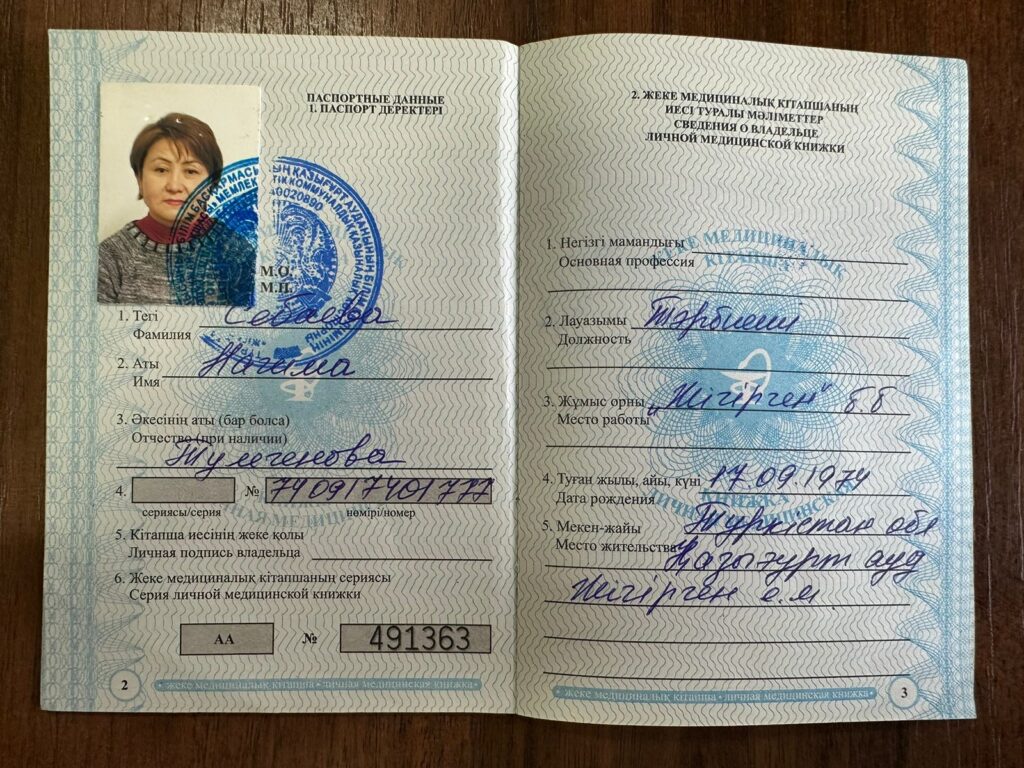 ПАСПОРТНЫЕ ДАННЫЕ
1. ПАСПОРТ ДЕРЕКТЕРІ
М.О.
М.П.
1. Тегі
Фамилия Себаева
2. Аты
Имя Нагима
3. Әкесінің аты (бар болса)
Отчество (при наличии)
Тулегенова
4. № 740917401777
сериясы/серия нөмірі/номер
5. Кітапша иесінің жеке қолы
Личная подпись владельца
6. Жеке медициналық кітапшаның сериясы
Серия личной медицинской книжки
АА № 491363
2 • ЖЕКЕ МЕДИЦИНАЛЫҚ КІТАПША • ЛИЧНАЯ МЕДИЦИНСКАЯ КНИЖКА •
2. ЖЕКЕ МЕДИЦИНАЛЫҚ КІТАПШАНЫҢ
ИЕСІ ТУРАЛЫ МӘЛІМЕТТЕР
СВЕДЕНИЯ О ВЛАДЕЛЬЦЕ
ЛИЧНОЙ МЕДИЦИНСКОЙ КНИЖКИ
1. Негізгі мамандығы
Основная профессия
2. Лауазымы Тәрбиеші
Должность
3. Жұмыс орны "Шігірген" б.б
Место работы
4. Туған жылы, айы, күні 17.09.1974
Дата рождения
5. Мекен-жайы Түркістан обл
Место жительства Қазығұрт ауд
Шігірген е.м
• ЖЕКЕ МЕДИЦИНАЛЫҚ КІТАПША • ЛИЧНАЯ МЕДИЦИНСКАЯ КНИЖКА • 3